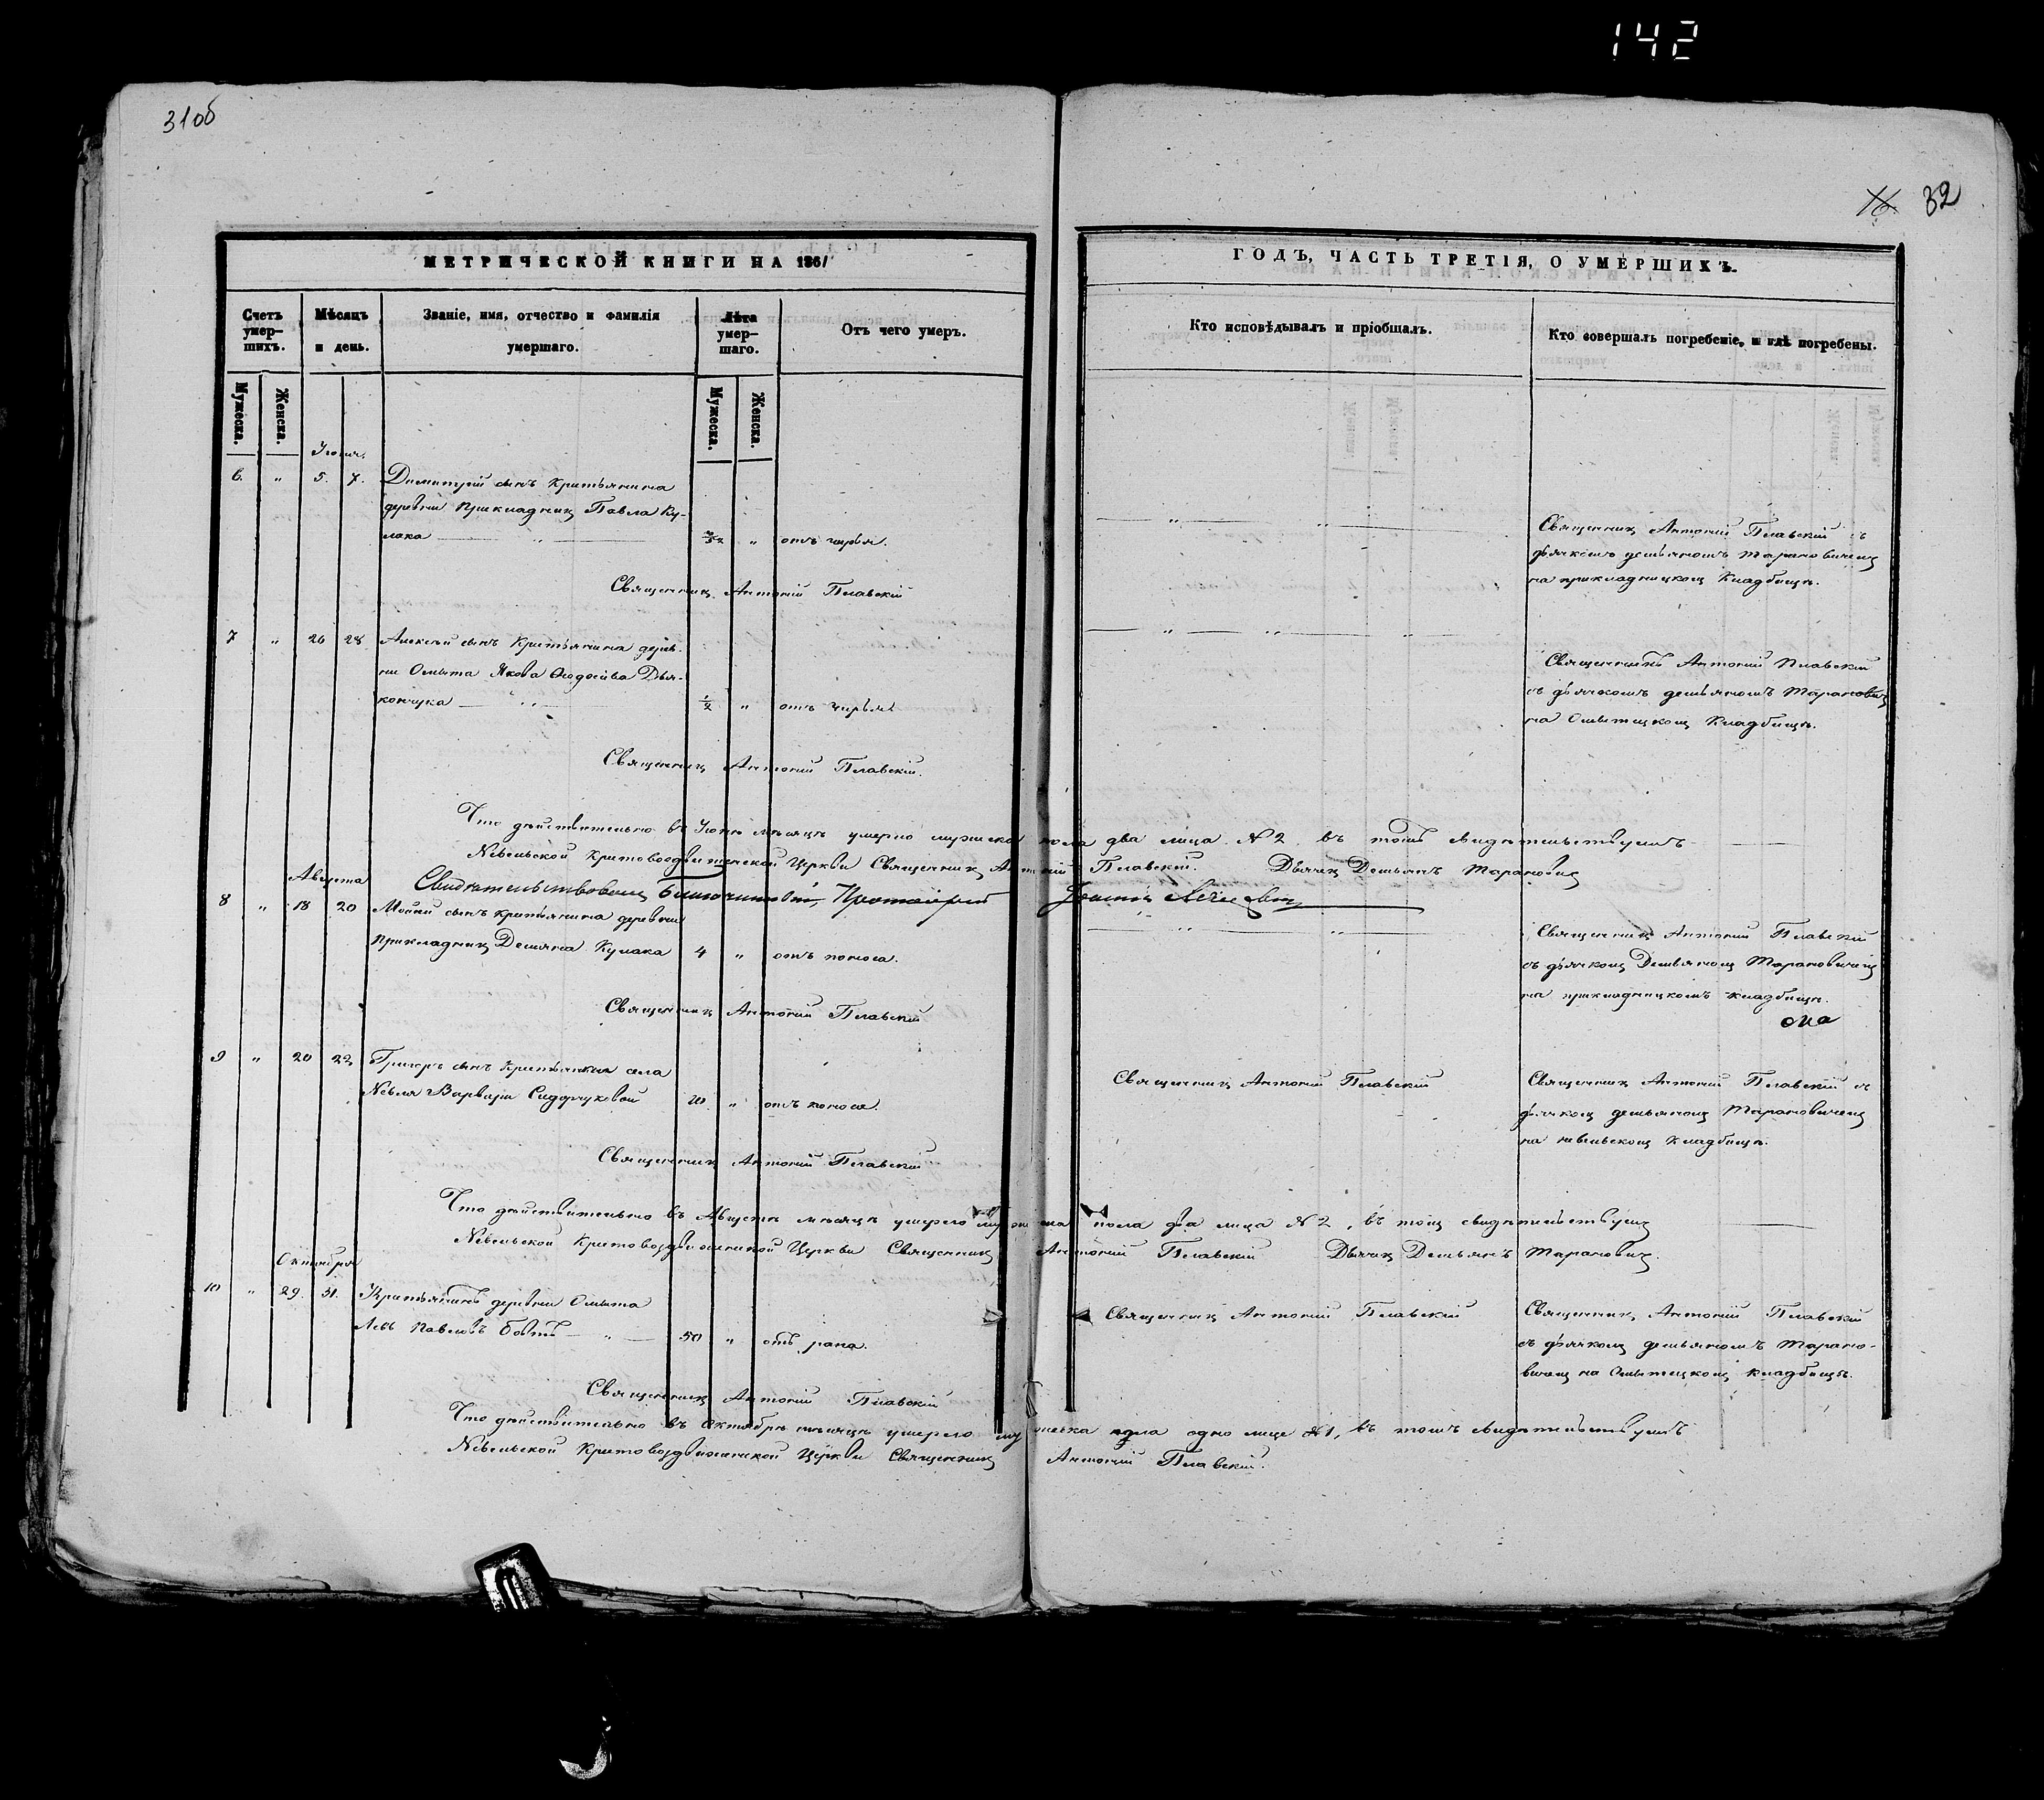 142
31об
16. 32
МЕТРИЧЕСКОЙ КНИГИ НА 1861
ГОДЪ, ЧАСТЬ ТРЕТІЯ, О УМЕРШИХЪ.
Счетъ умер-
шихъ.
Мѣсяцъ
и день.
Званіе, имя, отчество и фамилія
умершаго.
Лѣта
умер-
шаго.
Отъ чего умеръ.
Кто исповѣдывалъ и пріобщалъ.
Кто совершалъ погребеніе, и гдѣ погребены.
Мужеска.
Женска.
Мужеска.
Женска.
Іюня.
6. " 5. 7. Димитрій сынъ Крестьянина
деревни Прикладникъ Павла Ку-
лака " отъ чирья.
Священникъ Антоній Плавскій съ
дьячкомъ Демьяномъ Тарановичемъ
на прикладницкомъ кладбищѣ.
Священникъ Антоній Плавскій
7 " 26 28 Алексѣй сынъ Крестьянина дерев-
ни Омыта Якова Ѳеодосіева Дья-
кончука 1/2 " отъ чирья.
Священникъ Антоній Плавскій
съ дьячкомъ Демьяномъ Тарановичемъ
на Омытицкомъ Кладбищѣ.
Священникъ Антоній Плавскій.
Что дѣйствительно въ Іюнѣ мѣсяцѣ умерло мужеска пола два лица N 2. въ томъ свидѣтельствуемъ
Невельской Крестовоздвиженской Церкви Священникъ Антоній Плавскій. Дьячекъ Демьянъ Тарановичъ
Свидѣтельствовалъ Благочинный, Протоіерей Іоаннъ
Августа
8 " 18 20 Мойсей сынъ крестьянина деревни
Прикладникъ Демяна Кулака 4 " отъ поноса.
Священникъ Антоній Плавскій
съ дьячкомъ Демьяномъ Тарановичемъ
на прикладницкомъ кладбищѣ.
Священникъ Антоній Плавскій
9 " 20 22 Григоръ сынъ Крестьянки села
Невля Варвары Сидорчуковой 20. " отъ поноса.
Священникъ Антоній Плавскій
Священникъ Антоній Плавскій съ
дьячкомъ Демьяномъ Тарановичемъ
на невельскомъ Кладбищѣ.
Священникъ Антоній Плавскій
Что дѣйствительно въ Августѣ мѣсяцѣ умерло мужеска пола два лица N 2, въ томъ свидѣтельствуемъ
Невельской Крестовоздвиженской Церкви Священникъ Антоній Плавскій Дьячекъ Демьянъ Тарановичъ.
Октября
10 " 29. 31. Крестьянинъ деревни Омыта
Левъ Павловъ 50 " отъ рака.
Священникъ Антоній Плавскій
Священникъ Антоній Плавскій
съ дьячкомъ Демьяномъ Тарано-
вичемъ на Омытицкомъ кладбищѣ.
Священникъ Антоній Плавскій
Что дѣйствительно въ Октябрѣ мѣсяцѣ умерло мужеска пола одно лице N 1, въ томъ свидѣтельствуемъ
Невельской Крестовоздвиженской Церкви Священникъ Антоній Плавскій.